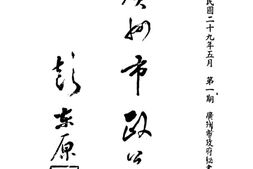 民國二十九年五月 第一期 廣州市政府秘書
廣州市政公
彭東原